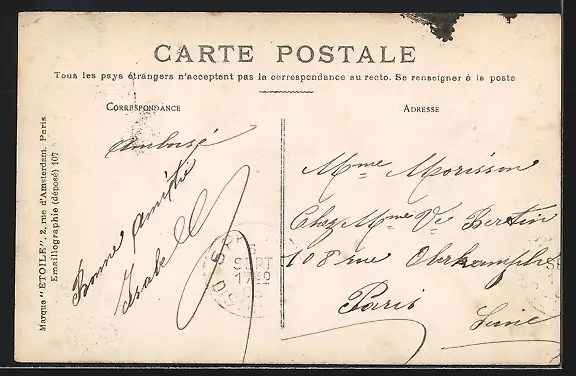 CARTE POSTALE
Tous les pays étrangers n'acceptent pas la correspondance au recto. Se renseigner à la poste
CORRESPONDANCE
Bonne Amitié
ADRESSE
Mme Morisson
Chez Mme Ve Bertin
108 rue Oberkampf
Paris
Seine
Marque "ÉTOILE", 2, rue d'Amsterdam, Paris
Emaillographie (déposé) 107